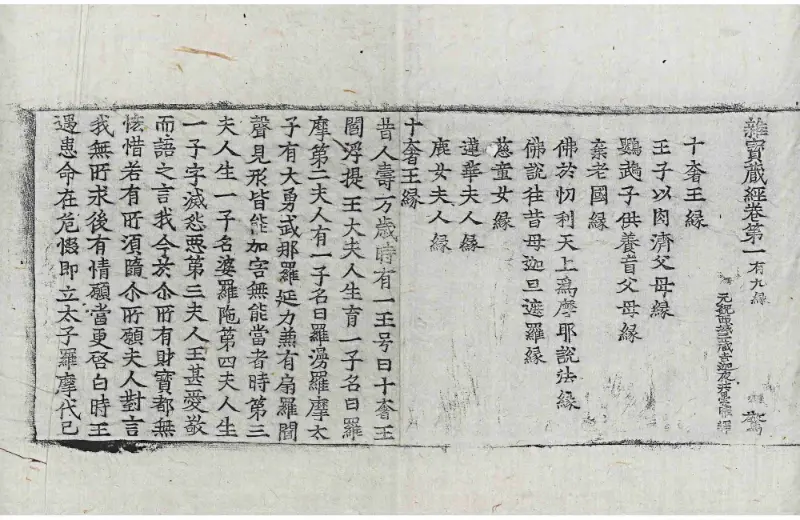 雜寶蔵經卷第一 有九縁
元魏 三蔵吉迦夜共曇曜譯
十奢王縁
王子以肉濟父母縁
鸚鵡子供養盲父母縁
棄老國縁
佛於忉利天上爲摩耶說法縁
佛說往昔母迦旦遮羅縁
慈童女縁
蓮華夫人縁
鹿女夫人縁
十奢王縁
昔人壽万歳時有一王号曰十奢王
閻浮提王大夫人生育一子名曰羅
摩第二夫人有一子名曰羅漫羅摩太
子有大勇武那羅延力兼有扇羅聞
聲見形皆能加害無能當者時第三
夫人生一子名婆羅陁第四夫人生
一子字滅怨惡第三夫人王甚愛敬
而語之言我今於尒所有財寶都無
恡惜若有所須隨尒所願夫人對言
我無所求後有情願當更啓白時王
遇患命在危惙即立太子羅摩代已